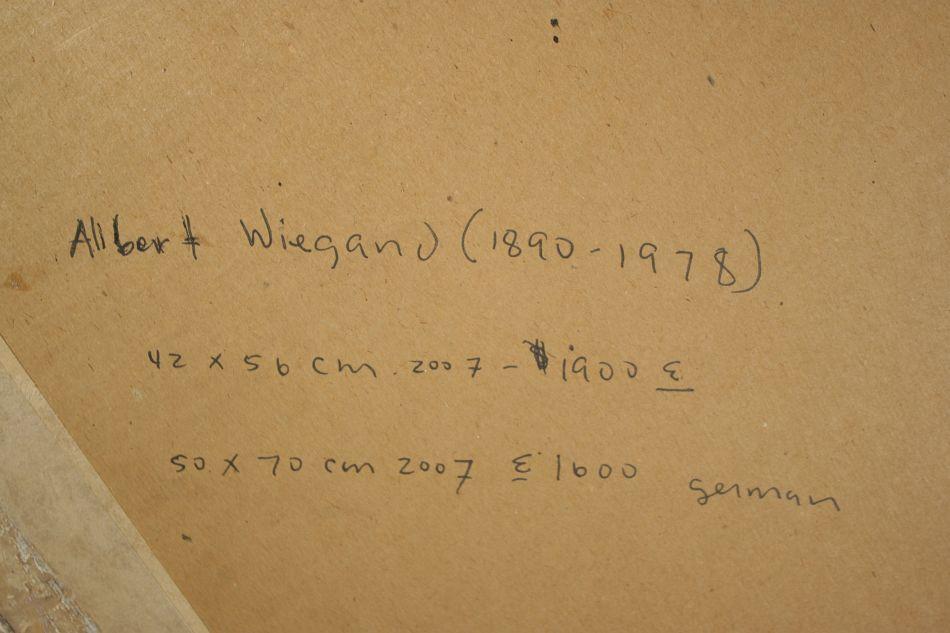 Allbert Wiegand (1890-1978)
42 x 56 cm. 2007 - $1900 £
50 x 70 cm 2007 £ 1600 german